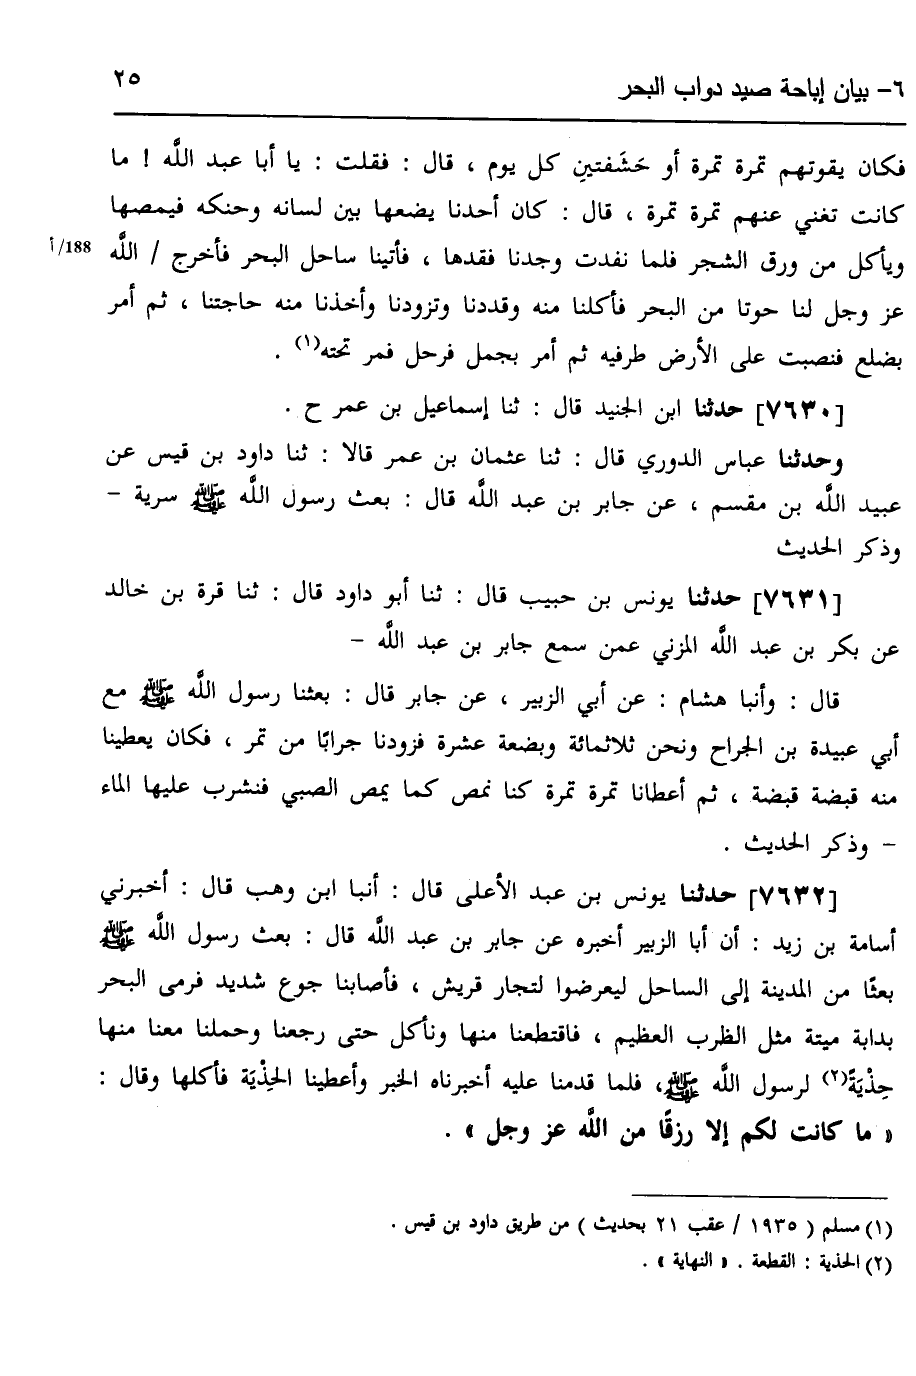 ٦- بيان إباحة صيد دواب البحر ٢٥
فكان يقوتهم تمرة تمرة أو حَشَفتينِ كل يوم ، قال : فقلت : يا أبا عبد اللَّه ! ما
كانت تغني عنهم تمرة تمرة ، قال : كان أحدنا يضعها بين لسانه وحنكه فيمصها
ويأكل من ورق الشجر فلما نفدت وجدنا فقدها ، فأتينا ساحل البحر فأخرج / اللَّه 188/أ
عز وجل لنا حوتا من البحر فأكلنا منه وقددنا وتزودنا وأخذنا منه حاجتنا ، ثم أمر
بضلع فنصبت على الأرض طرفيه ثم أمر بجمل فرحل فمر تحته(١) .
[٧٦٣٠] حدثنا ابن الجنيد قال : ثنا إسماعيل بن عمر ح .
وحدثنا عباس الدوري قال : ثنا عثمان بن عمر قالا : ثنا داود بن قيس عن
عبيد اللَّه بن مقسم ، عن جابر بن عبد اللَّه قال : بعث رسول اللَّه ﷺ سرية -
وذكر الحديث
[٧٦٣١] حدثنا يونس بن حبيب قال : ثنا أبو داود قال : ثنا قرة بن خالد
عن بكر بن عبد اللَّه المزني عمن سمع جابر بن عبد اللَّه -
قال : وأنبا هشام : عن أبي الزبير ، عن جابر قال : بعثنا رسول اللَّه ﷺ مع
أبي عبيدة بن الجراح ونحن ثلاثمائة وبضعة عشرة فزودنا جرابًا من تمر ، فكان يعطينا
منه قبضة قبضة ، ثم أعطانا تمرة تمرة كنا نمص كما يمص الصبي فنشرب عليها الماء
- وذكر الحديث .
[٧٦٣٢] حدثنا يونس بن عبد الأعلى قال : أنبا ابن وهب قال : أخبرني
أسامة بن زيد : أن أبا الزبير أخبره عن جابر بن عبد اللَّه قال : بعث رسول اللَّه ﷺ
بعثًا من المدينة إلى الساحل ليعرضوا لتجار قريش ، فأصابنا جوع شديد فرمى البحر
بدابة ميتة مثل الظرب العظيم ، فاقتطعنا منها ونأكل حتى رجعنا وحملنا معنا منها
حِذْيَةً(٢) لرسول اللَّه ﷺ، فلما قدمنا عليه أخبرناه الخبر وأعطينا الحِذْيَة فأكلها وقال :
« ما كانت لكم إلا رزقًا من اللَّه عز وجل » .
(١) مسلم ( ١٩٣٥ / عقب ٢١ بحديث ) من طريق داود بن قيس .
(٢) الحذية : القطعة . « النهاية » .